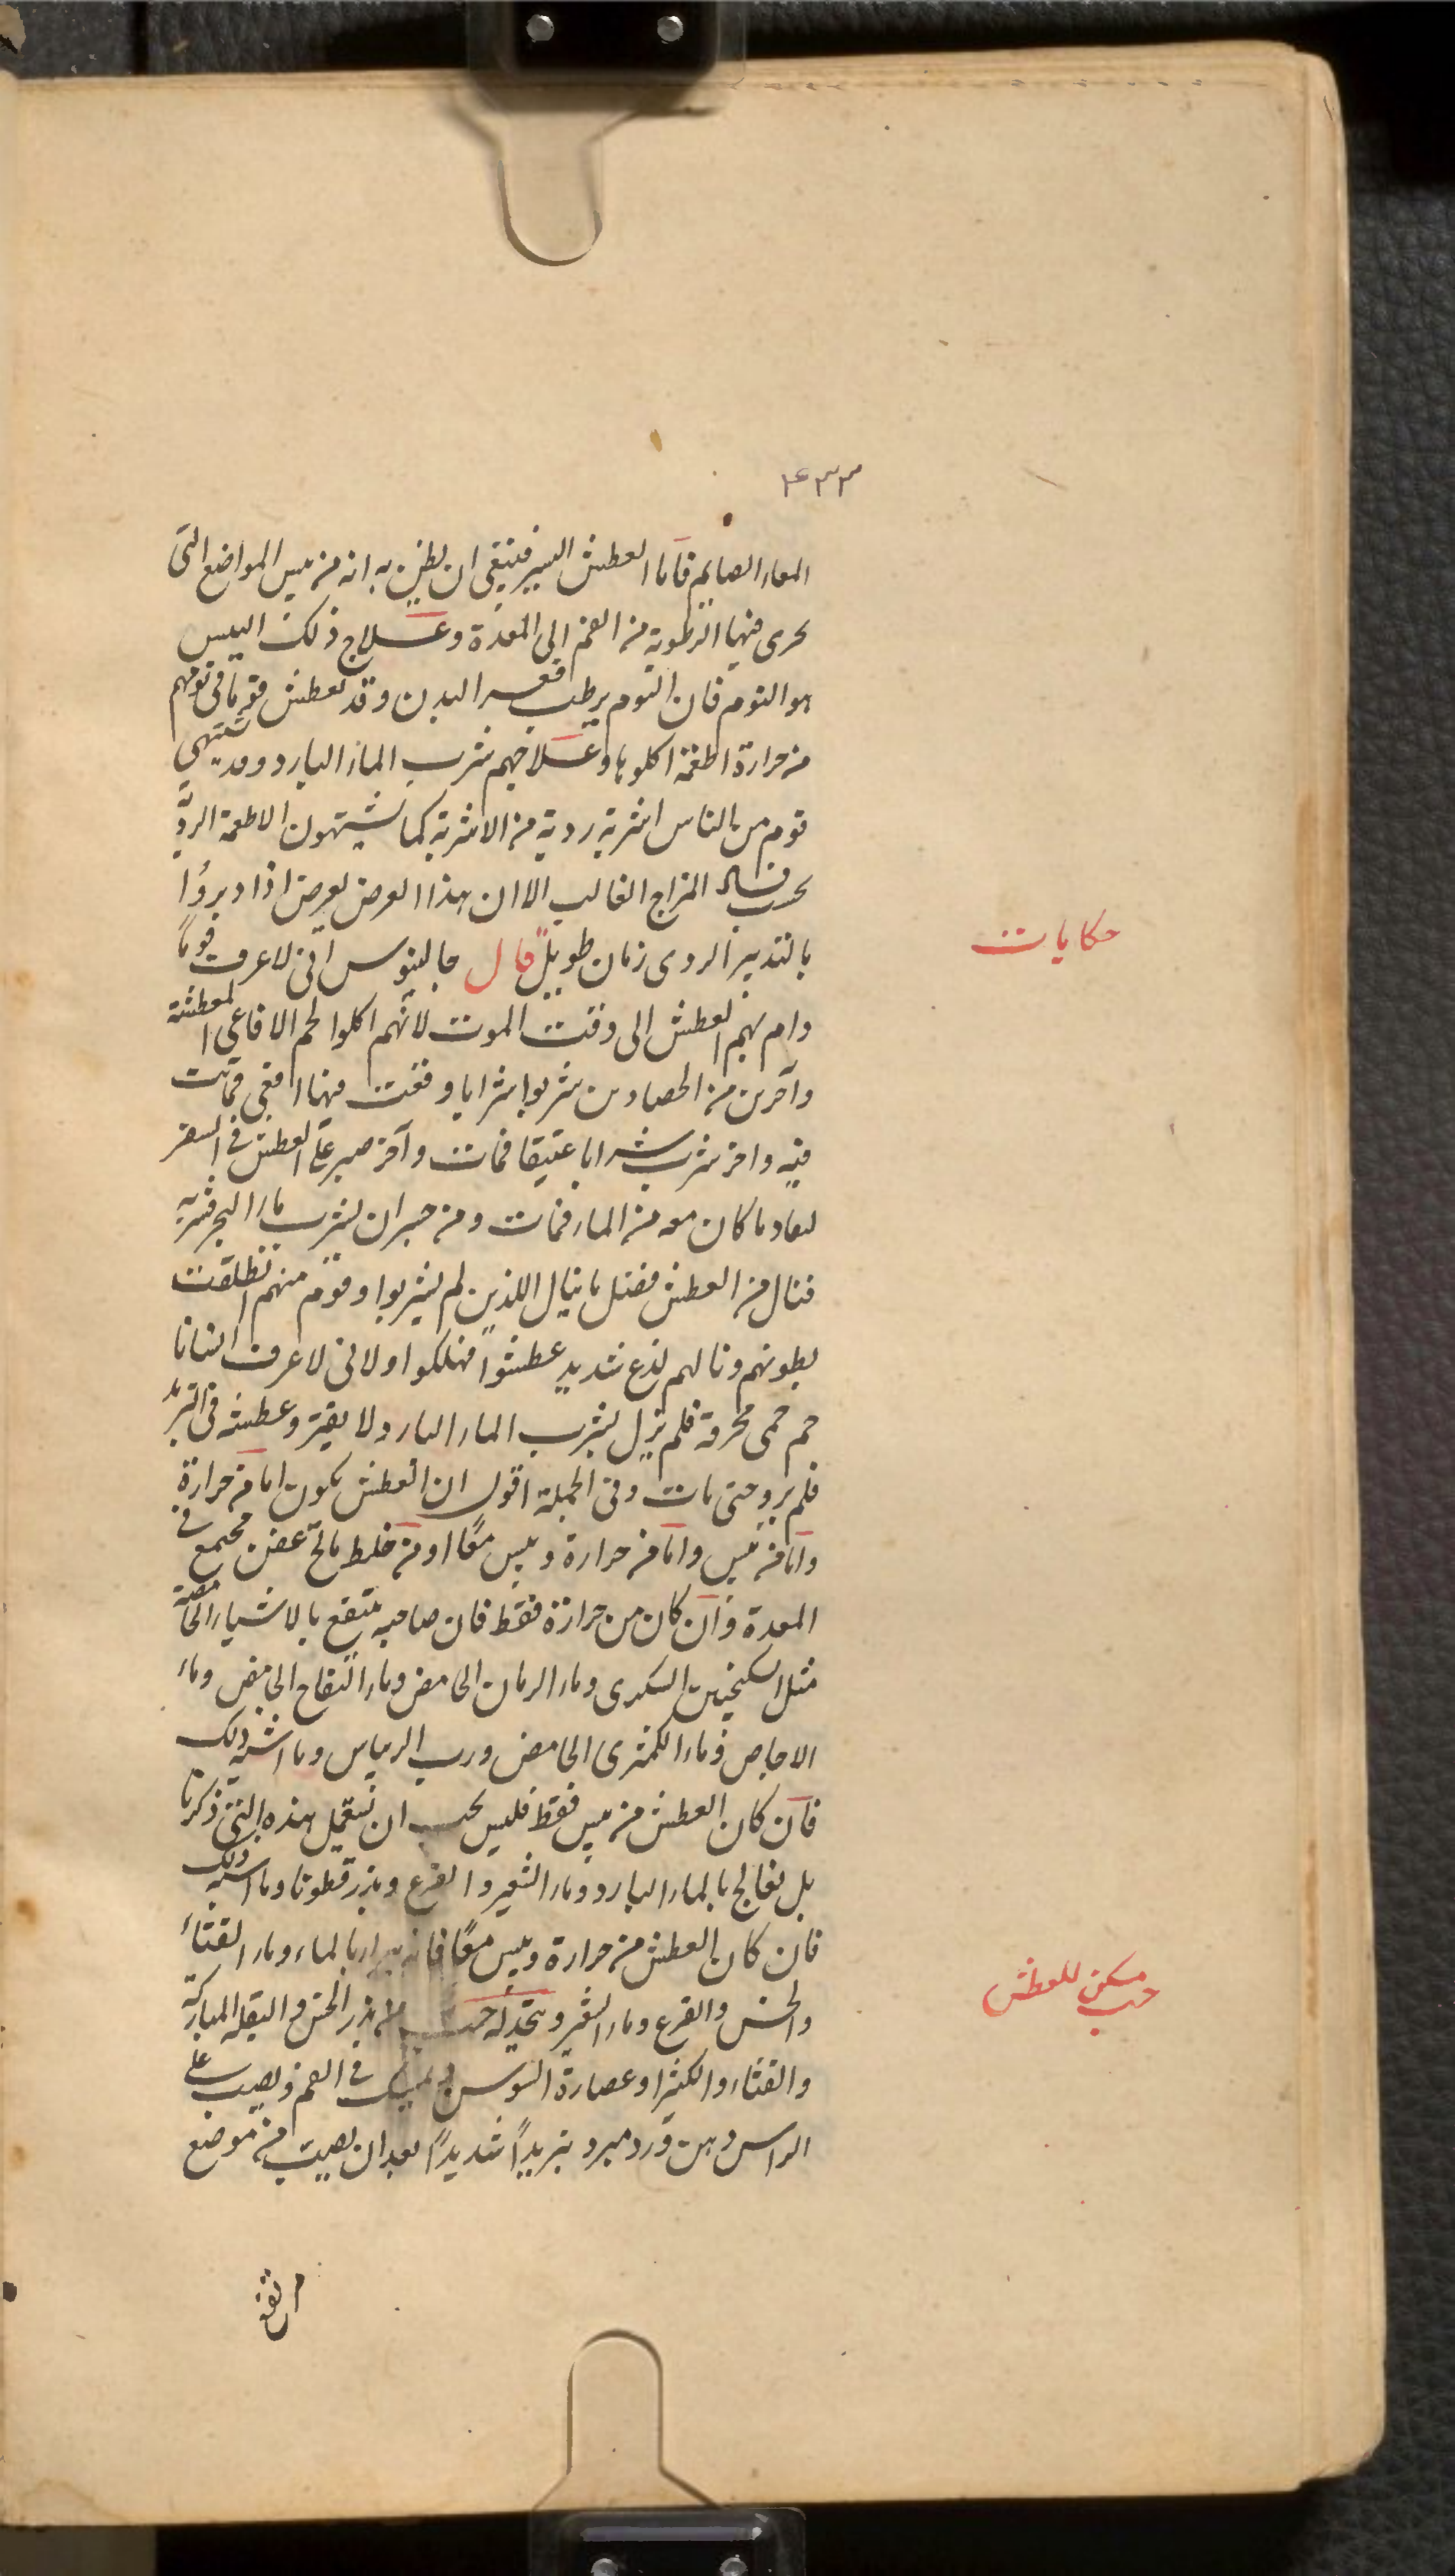 ۴۳۳
المعاء الصايم فاما العطش اليسير فينبغى ان يظن به انه من يبس المواضع التى
يجرى فيها الرطوبة من الفم الى المعدة وعلاج ذلك اليبس
هو النوم فان النوم يرطب قعر البدن وقد يعطش قوما فى نومهم
من حرارة اطعمة اكلوها وعلاجهم شرب الماء البارد وقد يشتهى
قوم من الناس اشربة ردية من الاشربة كما يشتهون الاطعمة الردية
بحسب فساد المزاج الغالب الا ان هذا العرض يعرض اذا دبروا
بالتدبير الردى زمان طويل قال جالينوس انى لاعرف قوما
حكايات
دام بهم العطش الى وقت الموت لانهم اكلوا لحم الافاعى المعطشة
وآخرين من الحصادين شربوا شرابا وقعت فيها افعى فماتت
فيه واخر شرب شرابا عتيقا فمات وآخر صبر على العطش فى السفر
ما كان معه من الماء فمات ومن شرب ماء البحر فشربه
فنال من العطش ما ينال اللذين لم يشربوا وقوم منهم انطلقت
بطونهم ونالهم لذع شديد عطشوا فهلكوا ولانى لاعرف انسانا
حم حمى محرقة فلم يزل يشرب الماء البارد ولا يفتر وعطشه فى التزيد
فلم يرو حتى مات وفى الجملة اقول ان العطش يكون اما من حرارة
واما من يبس واما من حرارة ويبس معا او من خلط مالح عفن مجتمع فى
المعدة وان كان من حرارة فقط فان صاحبه ينتفع بالاشياء الحامضة
مثل السكنجبين السكرى وماء الرمان الحامض وماء التفاح الحامض وماء
الاجاص وماء الكمثرى الحامض ورب الريباس وما اشبه ذلك
فان كان العطش من يبس فقط فليس يجب ان يستعمل هذه التى ذكرنا
بل يعالج بالماء البارد وماء الشعير والقرع وبزر قطونا وما اشبه ذلك
فان كان العطش من حرارة ويبس معا فانه بالماء وماء القثاء
والخس والقرع وماء الشعير ويتخذ له حب من بزر الخس والبقلة المباركة
حب مسكن للعطش
والقثاء والكثيرا وعصارة السوس ويمسك فى الفم ويصب على
الراس دهن ورد مبرد تبريدا شديدا بعد ان يصب من موضع